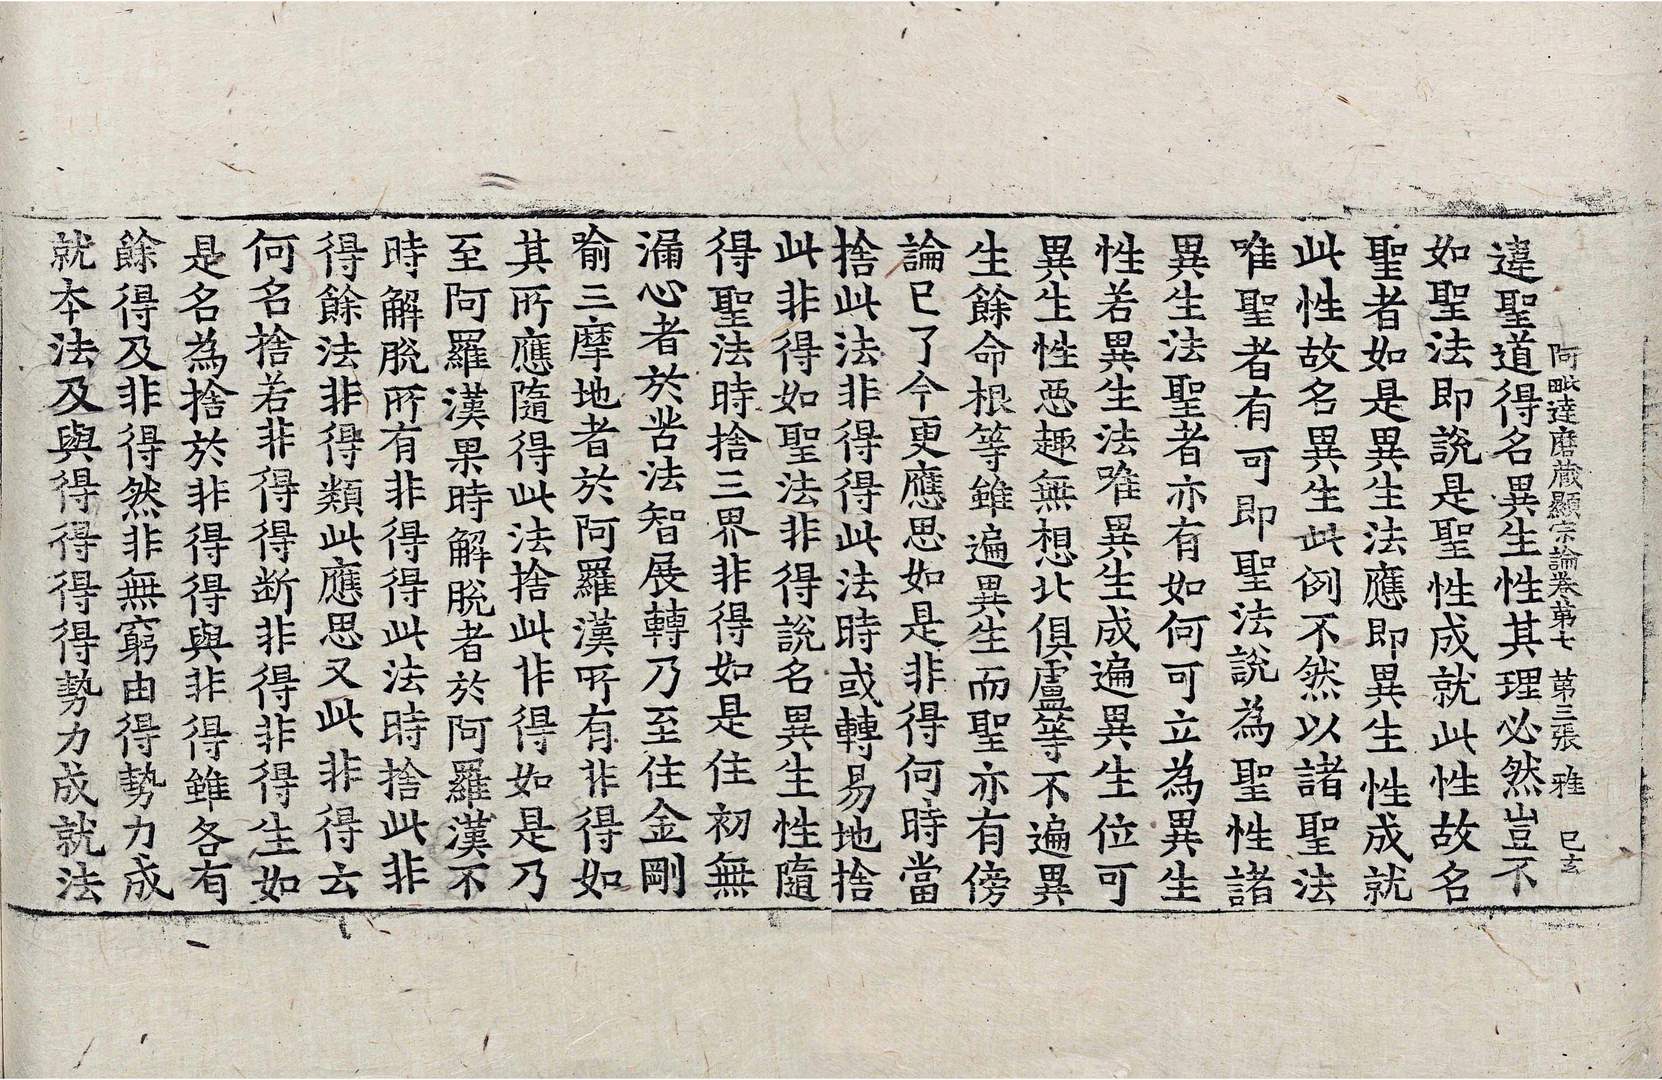 阿毗達磨藏顯宗論卷第七　第三張　雅　巳玄
違聖道得名異生性其理必然豈不
如聖法即說是聖性成就此性故名
聖者如是異生法應即異生性成就
此性故名異生此例不然以諸聖法
唯聖者有可即聖法說為聖性諸
異生法聖者亦有如何可立為異生
性若異生法唯異生成遍異生位可
異生性惡趣無想北俱盧等不遍異
生餘命根等雖遍異生而聖亦有傍
論已了今更應思如是非得何時當
捨此法非得得此法時或轉易地捨
此非得如聖法非得說名異生性隨
得聖法時捨三界非得如是住初無
漏心者於苦法智展轉乃至住金剛
喻三摩地者於阿羅漢所有非得如
其所應隨得此法捨此非得如是乃
至阿羅漢果時解脫者於阿羅漢不
時解脫所有非得得此法時捨此非
得餘法非得類此應思又此非得云
何名捨若非得得斷非得非得生如
是名為捨於非得得與非得雖各有
餘得及非得然非無窮由得勢力成
就本法及與得得得得勢力成就法